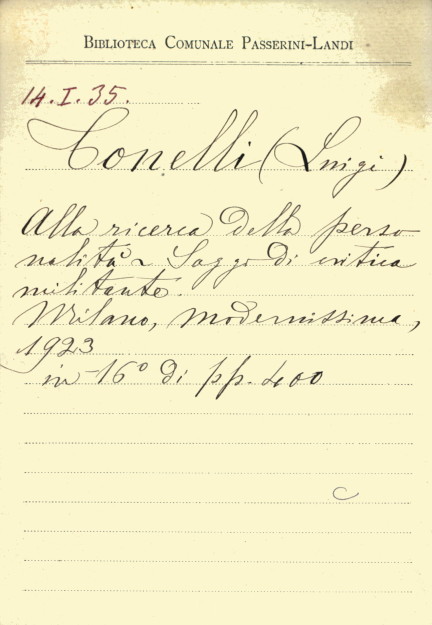 BIBLIOTECA COMUNALE PASSERINI-LANDI
14.I.35.
Tonelli (Luigi)
Alla ricerca della perso
nalità ~ Saggi di critica
militante.
Milano, Modernissima,
1923
in-16° di pp. 400